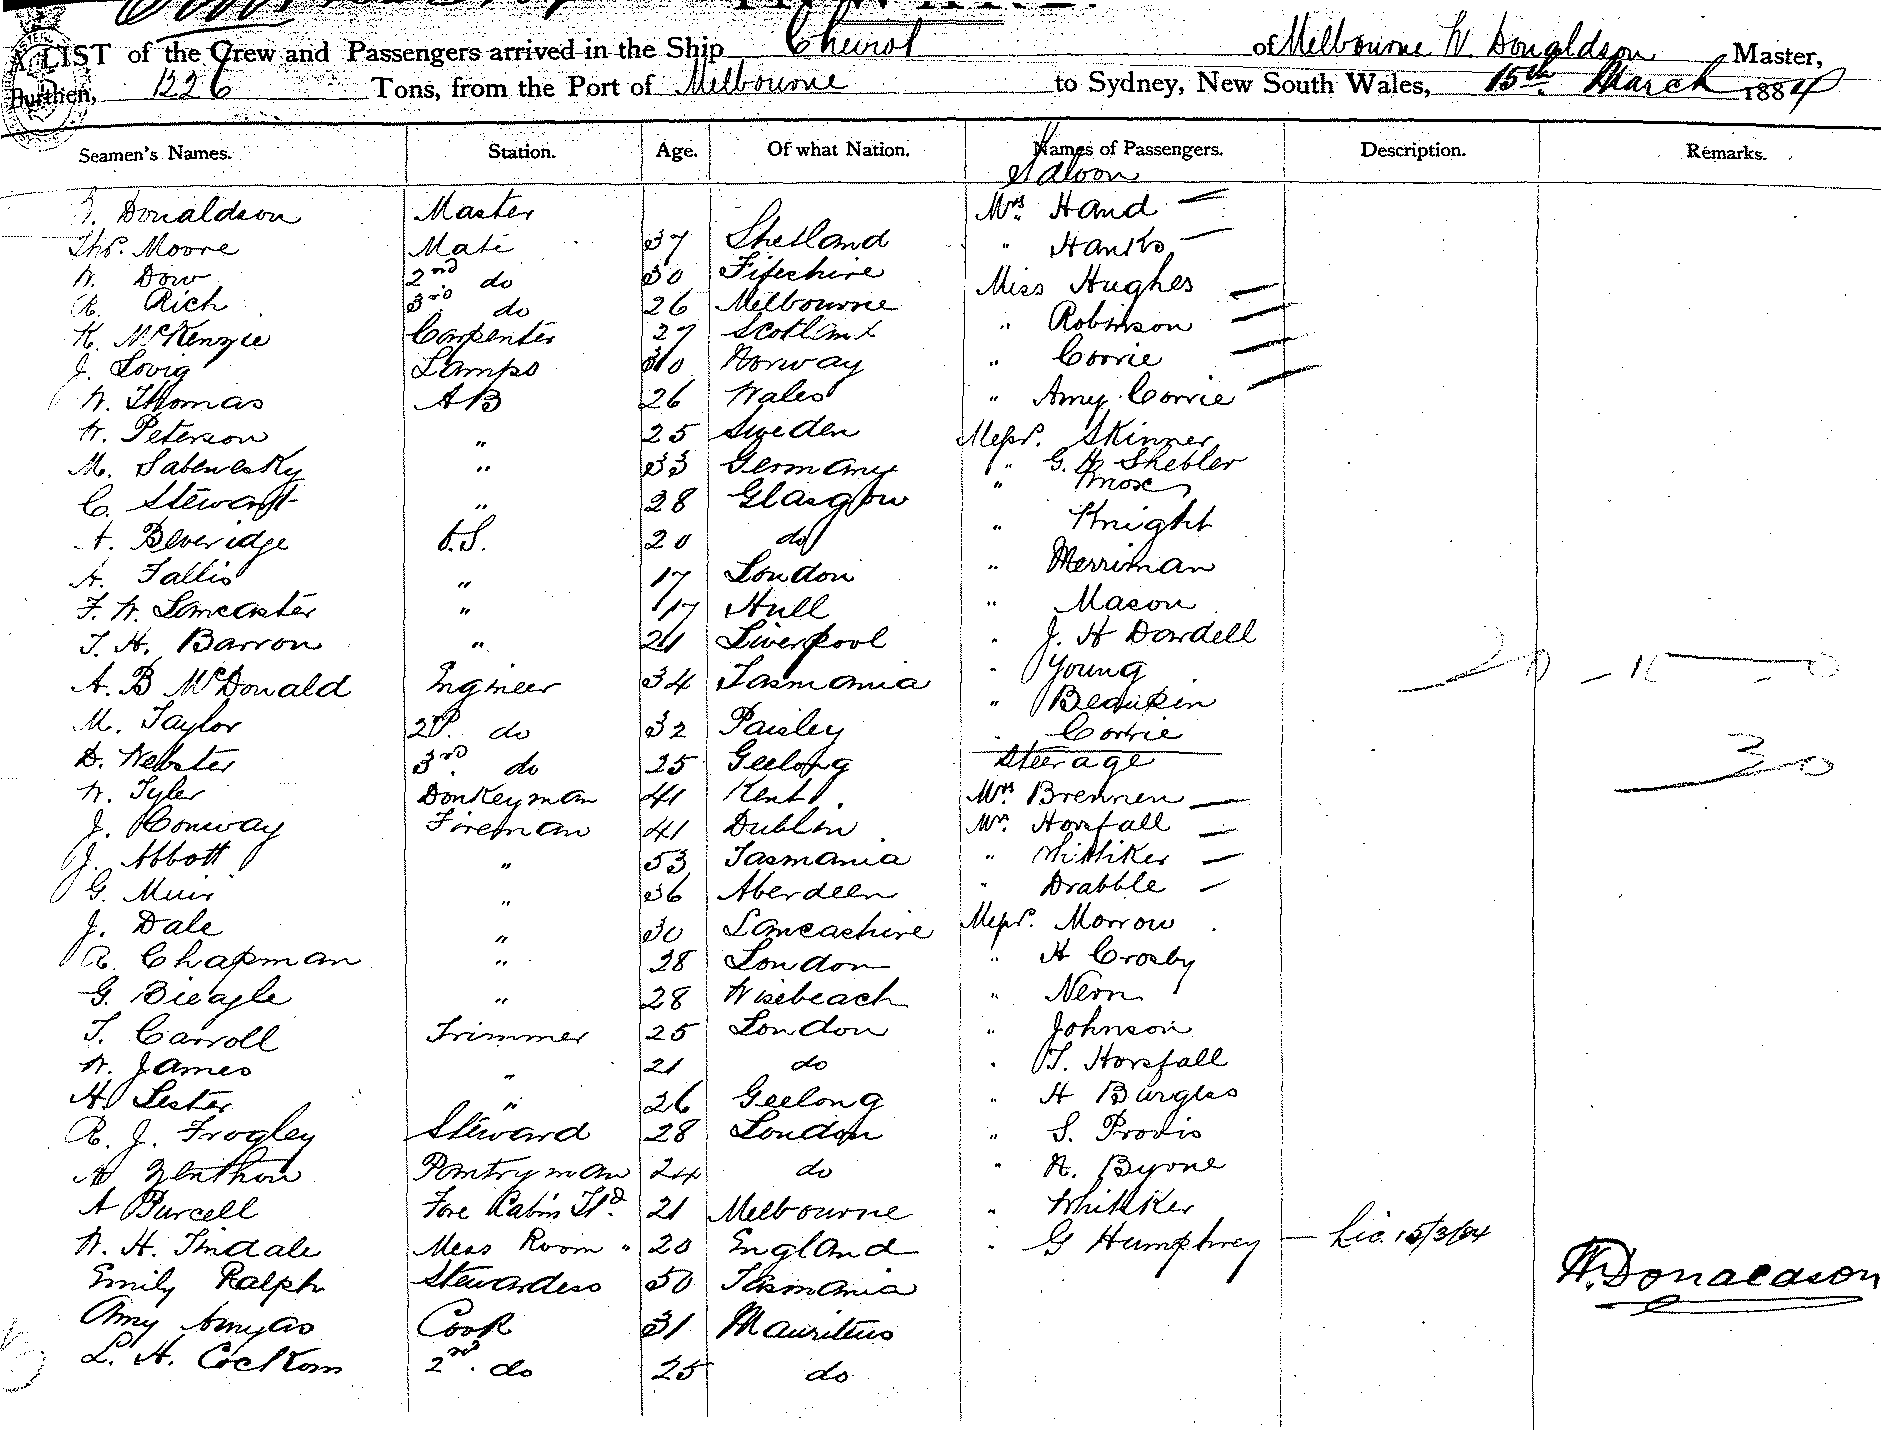 A LIST of the Crew and Passengers arrived in the Ship Cheviot of Melbourne W Donaldson Master,
Burthen, 1226 Tons, from the Port of Melbourne to Sydney, New South Wales, 15th March 1884
Seamen's Names. Station. Age. Of what Nation. Names of Passengers. Description. Remarks.
Saloon
Donaldson Master Mrs Hand
Thos. Moore Mate 37 Shetland "
W. Dow 2nd do 30 Fifeshire Miss Hughes
R. Rich 3rd do 26 Melbourne " Robinson
K. McKenzie Carpenter 27 Scotland " Corrie
J. Lovig Lamps 30 Norway " Amy Corrie
W. Thomas AB 26 Wales Messrs. Skinner
W. Peterson " 25 Sweden " G. H Shebler
M. " 33 Germany " Knox
C. Stewart " 28 Glasgow " Knight
A. Beveridge O.S. 20 do " Merriman
A. Fallis " 17 London " Mason
F. W. Lancaster " 17 Hull " J. H Dardell
T. H. Barron " 21 Liverpool " Young
A. B McDonald Engineer 34 Tasmania "
M. Taylor 2d. do 32 Paisley " Corrie
D. Webster 3rd do 25 Geelong Steerage
W. Tyler Donkeyman 41 Kent Mrs Brennen
J. Conway Fireman 41 Dublin Mrs. Horsfall
J. Abbott " 53 Tasmania " Whittiker
G. Muir " 36 Aberdeen " Drabble
J. Dale " 30 Lancashire Messrs. Morrow
R. Chapman " 28 London " H Crosby
G. Bieagle " 28 Wisebeach "
T. Carroll Trimmer 25 London " Johnson
W. James " 21 do " T. Horsfall
H. Lester " 26 Geelong " H Burgess
R. J. Frogley Steward 28 London " S.
Pantryman 24 do " Byrne
A Purcell Fore Cabin Std. 21 Melbourne " Whittiker
W. H. Tindale Mess Room " 20 England " G Humphrey — Lic. 15/3/84
Emily Ralph Stewardess 50 Tasmania
Amy Amyas Cook 31 Mauritius
L. A. 2nd. do 25 do
W. Donaldson
30